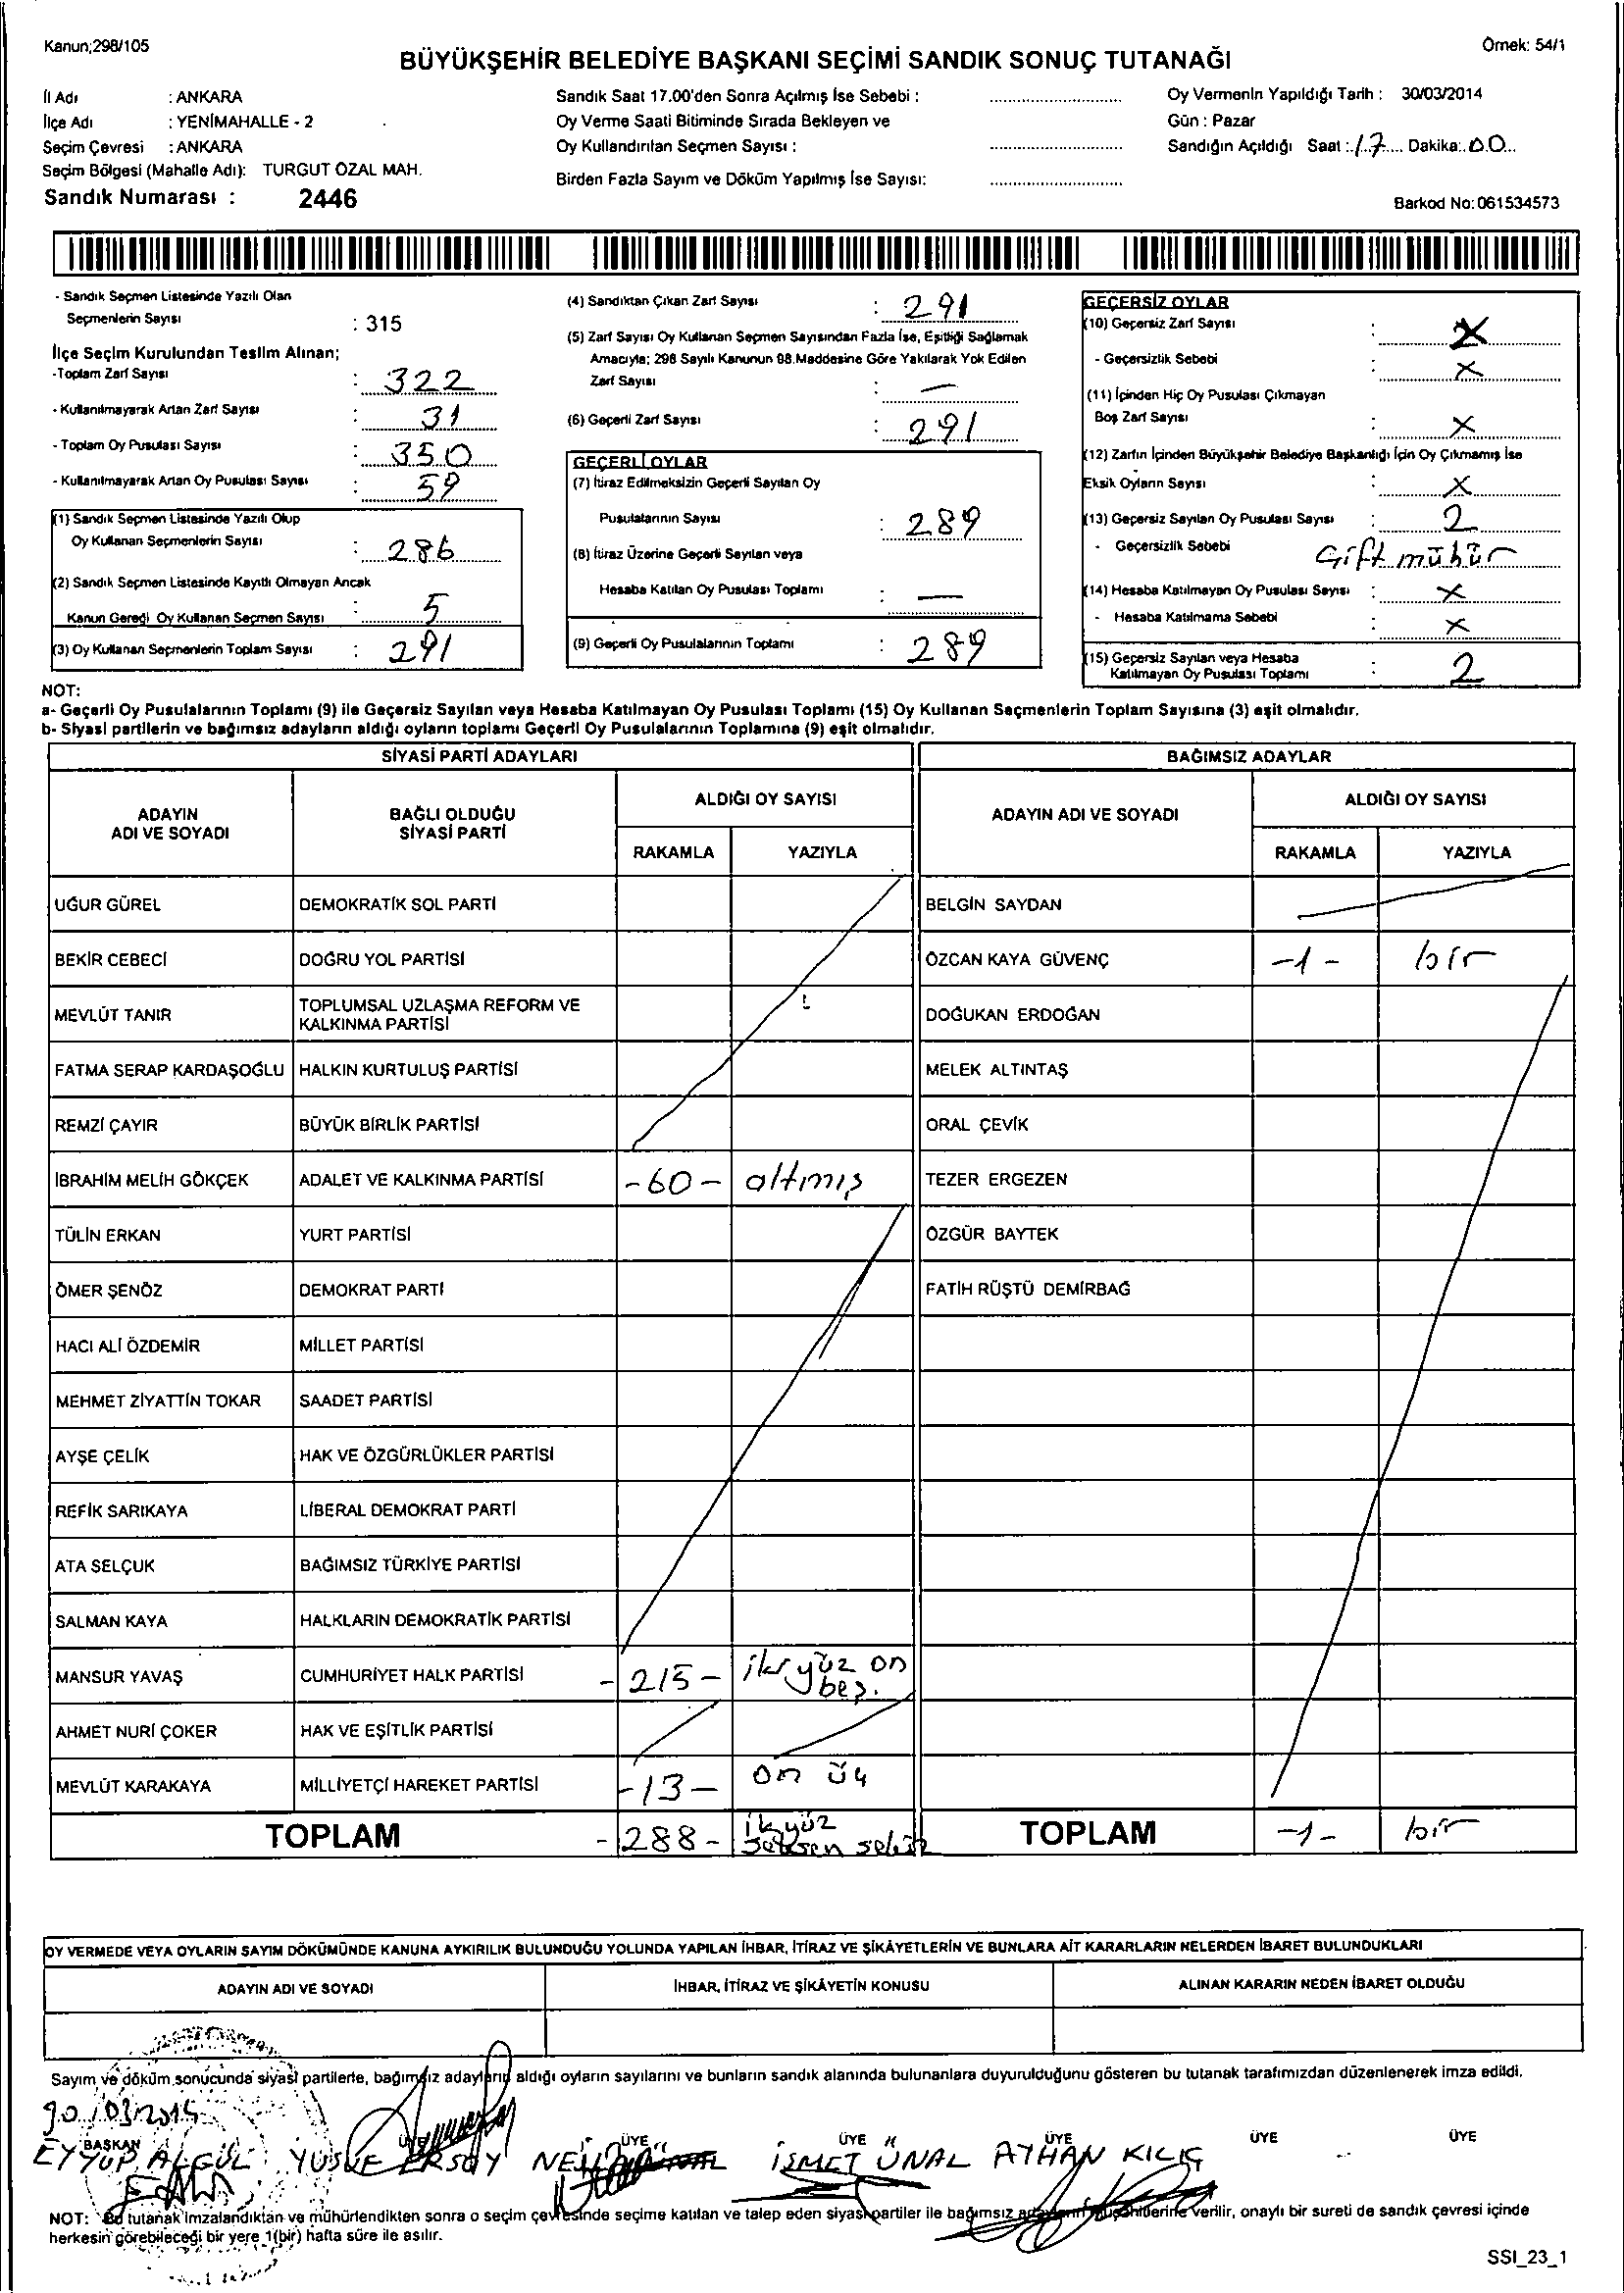 Kanun;298/105
Örnek: 54/1
BÜYÜKŞEHİR BELEDİYE BAŞKANI SEÇİMİ SANDIK SONUÇ TUTANAĞI
İl Adı : ANKARA
İlçe Adı : YENİMAHALLE - 2
Seçim Çevresi : ANKARA
Seçim Bölgesi (Mahalle Adı): TURGUT ÖZAL MAH.
Sandık Numarası : 2446
Sandık Saat 17.00'den Sonra Açılmış İse Sebebi :
Oy Verme Saati Bitiminde Sırada Bekleyen ve
Oy Kullandırılan Seçmen Sayısı :
Birden Fazla Sayım ve Döküm Yapılmış İse Sayısı:
Oy Vermenin Yapıldığı Tarih : 30/03/2014
Gün : Pazar
Sandığın Açıldığı Saat : 17 Dakika: 00
Barkod No: 061534573
- Sandık Seçmen Listesinde Yazılı Olan
Seçmenlerin Sayısı : 315
İlçe Seçim Kurulundan Teslim Alınan;
-Toplam Zarf Sayısı : 322
- Kullanılmayarak Artan Zarf Sayısı : 31
- Toplam Oy Pusulası Sayısı : 350
- Kullanılmayarak Artan Oy Pusulası Sayısı : 59
(1) Sandık Seçmen Listesinde Yazılı Olup
Oy Kullanan Seçmenlerin Sayısı : 286
(2) Sandık Seçmen Listesinde Kayıtlı Olmayan Ancak
Kanun Gereği Oy Kullanan Seçmen Sayısı : 5
(3) Oy Kullanan Seçmenlerin Toplam Sayısı : 291
(4) Sandıktan Çıkan Zarf Sayısı : 291
(5) Zarf Sayısı Oy Kullanan Seçmen Sayısından Fazla İse, Eşitliği Sağlamak
Amacıyla; 298 Sayılı Kanunun 98.Maddesine Göre Yakılarak Yok Edilen
Zarf Sayısı : —
(6) Geçerli Zarf Sayısı : 291
GEÇERLİ OYLAR
(7) İtiraz Edilmeksizin Geçerli Sayılan Oy
Pusulalarının Sayısı : 289
(8) İtiraz Üzerine Geçerli Sayılan veya
Hesaba Katılan Oy Pusulası Toplamı : —
(9) Geçerli Oy Pusulalarının Toplamı : 289
GEÇERSİZ OYLAR
(10) Geçersiz Zarf Sayısı : X
- Geçersizlik Sebebi : X
(11) İçinden Hiç Oy Pusulası Çıkmayan
Boş Zarf Sayısı : X
(12) Zarfın İçinden Büyükşehir Belediye Başkanlığı İçin Oy Çıkmamış İse
Eksik Oyların Sayısı : X
(13) Geçersiz Sayılan Oy Pusulası Sayısı : 2
- Geçersizlik Sebebi Çift mühür
(14) Hesaba Katılmayan Oy Pusulası Sayısı : X
- Hesaba Katılmama Sebebi : X
(15) Geçersiz Sayılan veya Hesaba
Katılmayan Oy Pusulası Toplamı : 2
NOT:
a- Geçerli Oy Pusulalarının Toplamı (9) ile Geçersiz Sayılan veya Hesaba Katılmayan Oy Pusulası Toplamı (15) Oy Kullanan Seçmenlerin Toplam Sayısına (3) eşit olmalıdır.
b- Siyasi partilerin ve bağımsız adayların aldığı oyların toplamı Geçerli Oy Pusulalarının Toplamına (9) eşit olmalıdır.
SİYASİ PARTİ ADAYLARI
ADAYIN ADI VE SOYADI
BAĞLI OLDUĞU SİYASİ PARTİ
ALDIĞI OY SAYISI
RAKAMLA YAZIYLA
UĞUR GÜREL DEMOKRATİK SOL PARTİ
BEKİR CEBECİ DOĞRU YOL PARTİSİ
MEVLÜT TANIR TOPLUMSAL UZLAŞMA REFORM VE KALKINMA PARTİSİ
FATMA SERAP KARDAŞOĞLU HALKIN KURTULUŞ PARTİSİ
REMZİ ÇAYIR BÜYÜK BİRLİK PARTİSİ
İBRAHİM MELİH GÖKÇEK ADALET VE KALKINMA PARTİSİ -60- altmış
TÜLİN ERKAN YURT PARTİSİ
ÖMER ŞENÖZ DEMOKRAT PARTİ
HACI ALİ ÖZDEMİR MİLLET PARTİSİ
MEHMET ZİYATTİN TOKAR SAADET PARTİSİ
AYŞE ÇELİK HAK VE ÖZGÜRLÜKLER PARTİSİ
REFİK SARIKAYA LİBERAL DEMOKRAT PARTİ
ATA SELÇUK BAĞIMSIZ TÜRKİYE PARTİSİ
SALMAN KAYA HALKLARIN DEMOKRATİK PARTİSİ
MANSUR YAVAŞ CUMHURİYET HALK PARTİSİ -215- iki yüz on beş.
AHMET NURİ ÇOKER HAK VE EŞİTLİK PARTİSİ
MEVLÜT KARAKAYA MİLLİYETÇİ HAREKET PARTİSİ -13- on üç
TOPLAM -288- ikyüz seksen sekiz
BAĞIMSIZ ADAYLAR
ADAYIN ADI VE SOYADI
ALDIĞI OY SAYISI
RAKAMLA YAZIYLA
BELGİN SAYDAN
ÖZCAN KAYA GÜVENÇ -1- bir
DOĞUKAN ERDOĞAN
MELEK ALTINTAŞ
ORAL ÇEVİK
TEZER ERGEZEN
ÖZGÜR BAYTEK
FATİH RÜŞTÜ DEMİRBAĞ
TOPLAM -1- bir
OY VERMEDE VEYA OYLARIN SAYIM DÖKÜMÜNDE KANUNA AYKIRILIK BULUNDUĞU YOLUNDA YAPILAN İHBAR, İTİRAZ VE ŞİKÂYETLERİN VE BUNLARA AİT KARARLARIN NELERDEN İBARET BULUNDUKLARI
ADAYIN ADI VE SOYADI İHBAR, İTİRAZ VE ŞİKÂYETİN KONUSU ALINAN KARARIN NEDEN İBARET OLDUĞU
Sayım ve döküm sonucunda siyasi partilerle, bağımsız adayların aldığı oyların sayılarını ve bunların sandık alanında bulunanlara duyurulduğunu gösteren bu tutanak tarafımızdan düzenlenerek imza edildi.
30/03/2014
BAŞKAN ÜYE ÜYE ÜYE ÜYE ÜYE ÜYE
EYYÜP AKGÜL YUSUF ERSOY İSMET ÜNAL AYHAN KILIÇ
NOT: Bu tutanak imzalandıktan ve mühürlendikten sonra o seçim çevresinde seçime katılan ve talep eden siyasi partiler ile bağımsız adayların müşahitlerine verilir, onaylı bir sureti de sandık çevresi içinde
herkesin görebileceği bir yere 1(bir) hafta süre ile asılır.
SSI_23_1